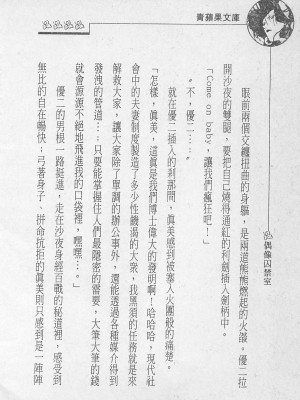 青蘋果文庫
偶像囚禁室
眼前兩個交纏扭曲的身軀，是兩道熊熊燃起的火燄。優二拉
開沙夜的雙腿，要把自己燒得通紅的利劍插入劍柄中。
「Come on baby，讓我們瘋狂吧！」
〝不，優二…〞
就在優二插入的刹那間，眞美感到被塞入火團般的痛楚。
「怎樣，眞美，這眞是我們博士偉大的發明啊！哈哈哈，現代社
會中的夫妻制度製造了多少性饑渴的大衆，我黑須的任務就是來
解救大家，讓大家除了單調的辦公事外，還能透過各種媒介得到
發洩的管道…只要能掌握住人們最隱密的需要，大筆大筆的錢
就會源源不絕地飛進我的口袋裡，嘿嘿…。」
優二的男根一路挺進，走在沙夜身經百戰的秘道裡，感受到
無比的自在暢快，弓著身子、拼命抗拒的眞美則只感到是一陣陣